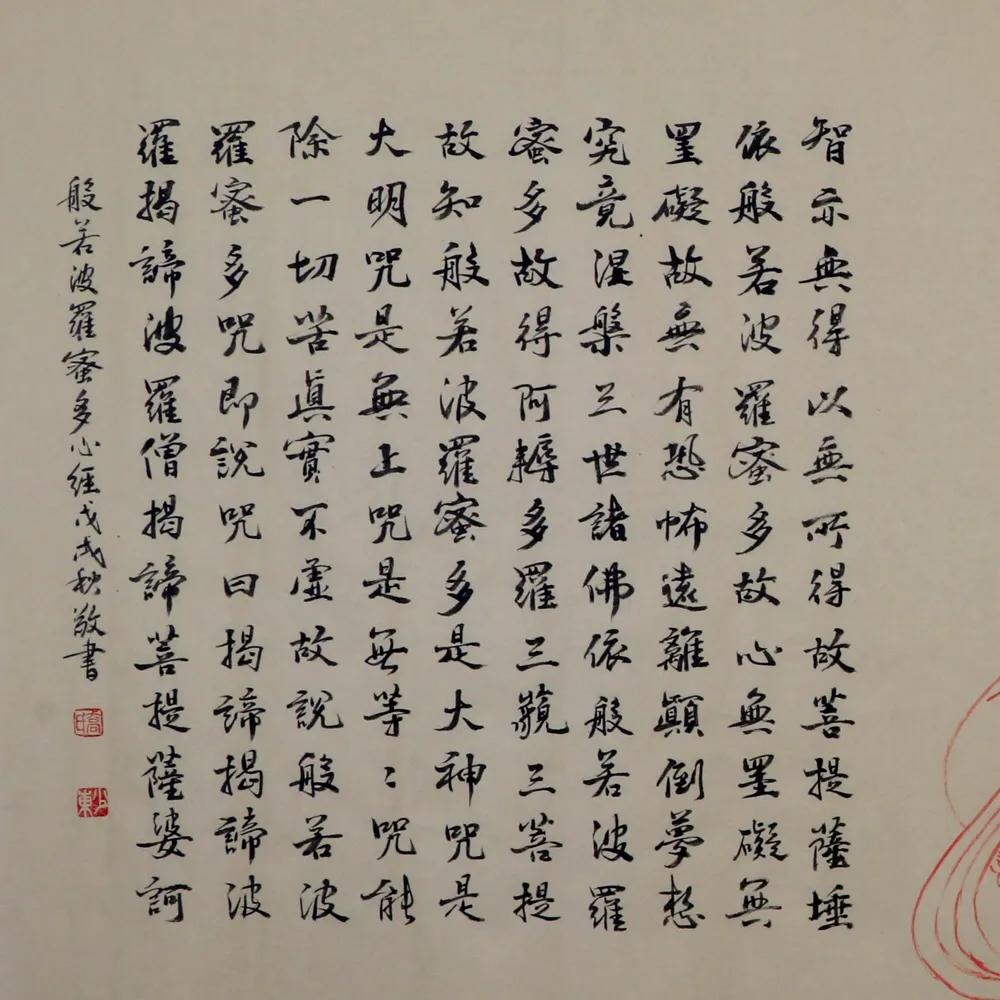 智亦無得以無所得故菩提薩埵
依般若波羅蜜多故心無罣礙無
罣礙故無有恐怖遠離顛倒夢想
究竟涅槃三世諸佛依般若波羅
蜜多故得阿耨多羅三藐三菩提
故知般若波羅蜜多是大神咒是
大明咒是無上咒是無等〻咒能
除一切苦眞實不虛故說般若波
羅蜜多咒即說咒曰揭諦揭諦波
羅揭諦波羅僧揭諦菩提薩婆訶
般若波羅蜜多心經戊戌秋敬書